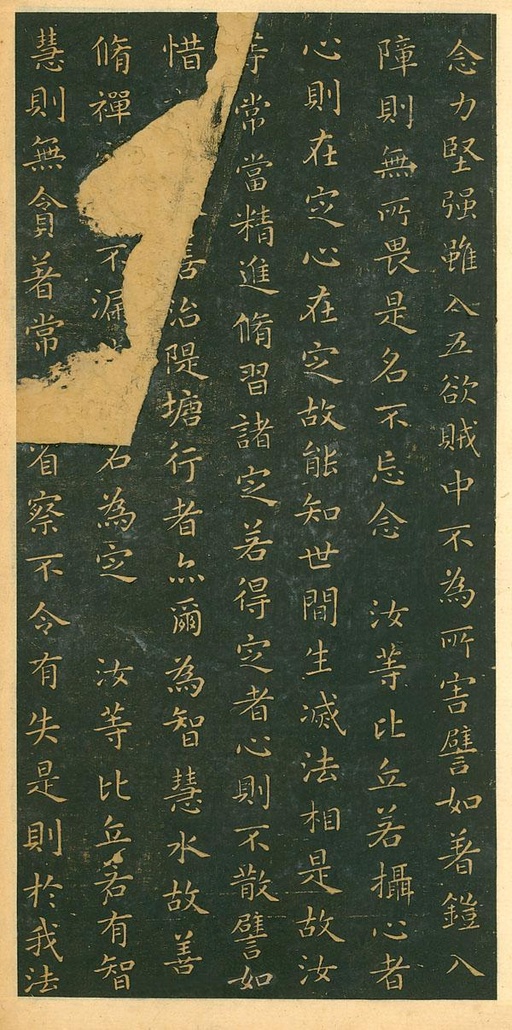 念力堅强雖入五欲賊中不為所害譬如著鎧入
障則無所畏是名不忘念 汝等比丘若攝心者
心則在定心在定故能知世間生滅法相是故汝
等常當精進脩習諸定若得定者心則不散譬如
惜 善治隄塘行者亦爾為智慧水故善
脩禪 不漏 名為定 汝等比丘若有智
慧則無貪著常 省察不令有失是則於我法